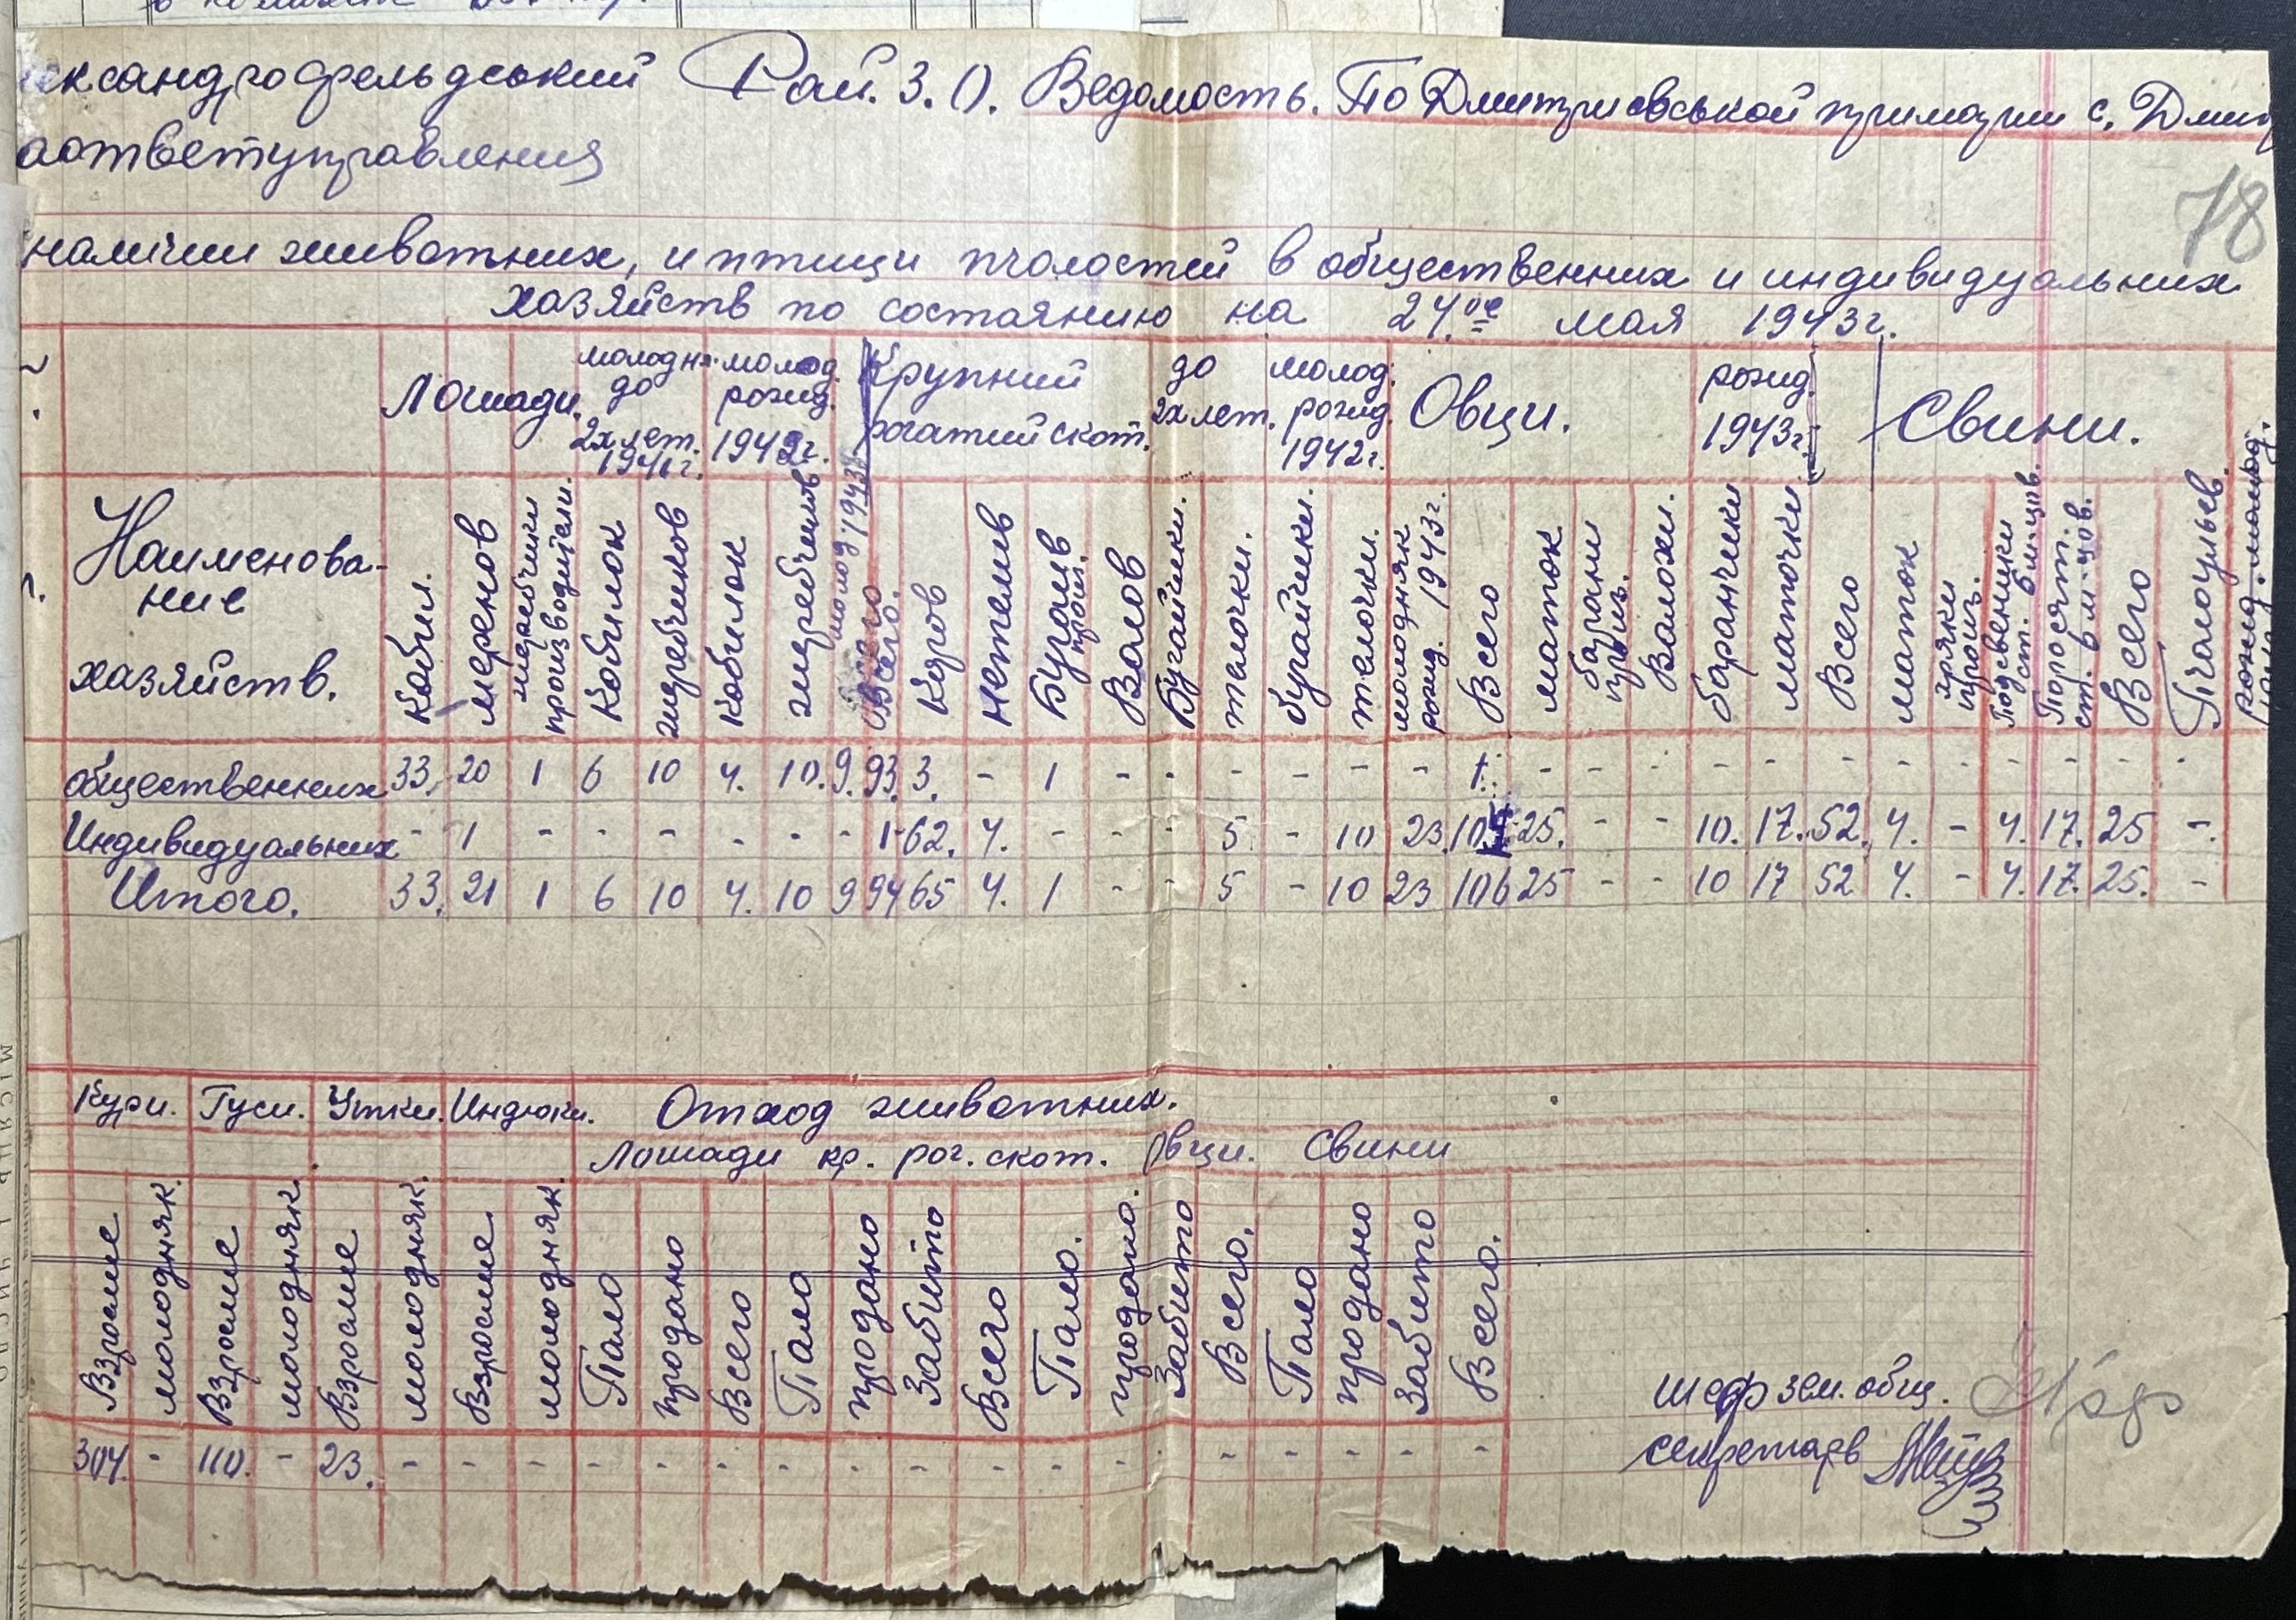 ександрофельдський Рай. З. О. Ведомость. По Дмитриевськой примарии с. Дмит
аответуправления
78
наличии животних, и птици пчолостей в общественних и индивидуальних
хазяйств по состоянию на 24ое мая 1943г.
Наименова-
ние
хазяйств.
Лошади. молодня. до 2х лет. 1941г. молод. рожд. 1942г. Крупний рогатий скот. до 2х лет. молод. рожд. 1942г. Овци. рожд. 1943г. Свини.
Кобил. меренов жеребчики производители. Кобилок жеребчиков кобилок жеребчиков молод. 1943 Всего. Коров нетелив Бугаив произ. Валов Бугайчики. телочки. бугайчики. телочки. молодняк рожд. 1943г. Всего маток барани произ. Валохи. баранчики маточки Всего маток хряки произ. Подсвенники ст. 6 м-цов. Поросят. ст. 6 м-цов. Всего Пчолоульев. рожд. молод.
общественних 33. 20 1 6 10 4. 10. 9. 93. 3. - 1 - - - - - - 1. - - - - - - - - - - - -
Индивидуальних - 1 - - - - - - 1 62. 4. - - - 5 - 10 23. 105. 25. - - 10. 17. 52. 4. - 4. 17. 25 -.
Итого. 33. 21 1 6 10 4. 10 9 94 65 4. 1 - - 5 - 10 23 106 25 - - 10 17 52 4. - 4. 17. 25. -
Кури. Гуси. Утки. Индюки. Отход животних.
Лошади кр. рог. скот. Овци. Свини
Взрослие молодняк. Взрослие молодняк. Взрослие молодняк. Взрослие молодняк. Пало продано Всего Пало продано Забито Всего Пало. продано. Забито Всего. Пало продано Забито Всего.
304. - 110. - 23. - - - - - - - - - - - - - - - - -
шеф зем. общ.
секретарь